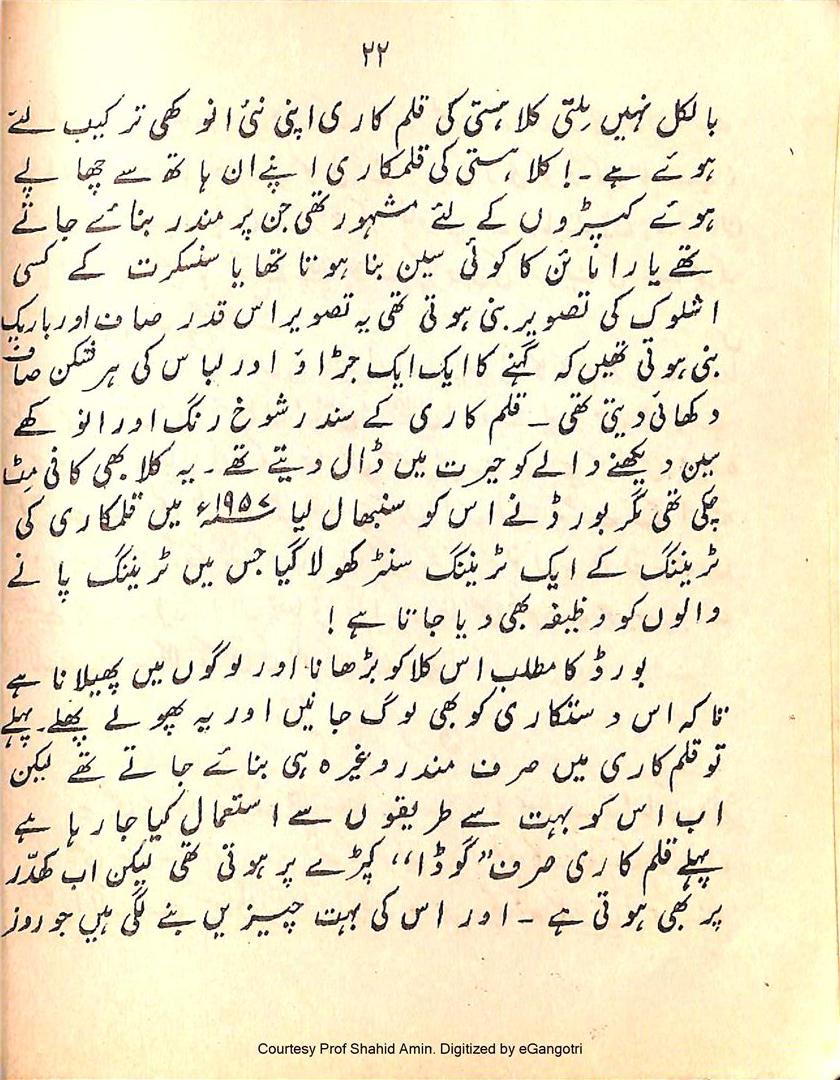 ۲۲
بالکل نہیں ملتی کلاہستی کی قلم کاری اپنی نئی انوکھی ترکیب لئے
ہوئے ہے ۔ ! کلاہستی کی قلمکاری اپنے ان ہاتھ سے چھاپے
ہوئے کپڑوں کے لئے مشہور تھی جن پر مندر بنائے جاتے
تھے یا رامائن کا کوئی سین بنا ہوتا تھا یا سنسکرت کے کسی
اشلوک کی تصویر بنی ہوتی تھی یہ تصویر اس قدر صاف اور باریک
بنی ہوتی تھیں کہ گہنے کا ایک ایک جڑاؤ اور لباس کی ہر شکن صاف
دکھائی دیتی تھی ۔ قلم کاری کے سندر شوخ رنگ اور انوکھے
سین دیکھنے والے کو حیرت میں ڈال دیتے تھے ۔ یہ کلا بھی کافی مٹ
چکی تھی مگر بورڈ نے اس کو سنبھال لیا ۱۹۵۷ء میں قلمکاری کی
ٹریننگ کے ایک ٹریننگ سنٹر کھولا گیا جس میں ٹریننگ پانے
والوں کو وظیفہ بھی دیا جاتا ہے !
بورڈ کا مطلب اس کلا کو بڑھانا اور لوگوں میں پھیلانا ہے
تاکہ اس دستکاری کو بھی لوگ جانیں اور یہ پھولے پھلے ۔ پہلے
تو قلم کاری میں صرف مندر وغیرہ ہی بنائے جاتے تھے لیکن
اب اس کو بہت سے طریقوں سے استعمال کیا جا رہا ہے
پہلے قلم کاری صرف ”گوڈا“ کپڑے پر ہوتی تھی لیکن اب کھدّر
پر بھی ہوتی ہے ۔ اور اس کی بہت چیزیں بنے لگی ہیں جو روز
Courtesy Prof Shahid Amin. Digitized by eGangotri